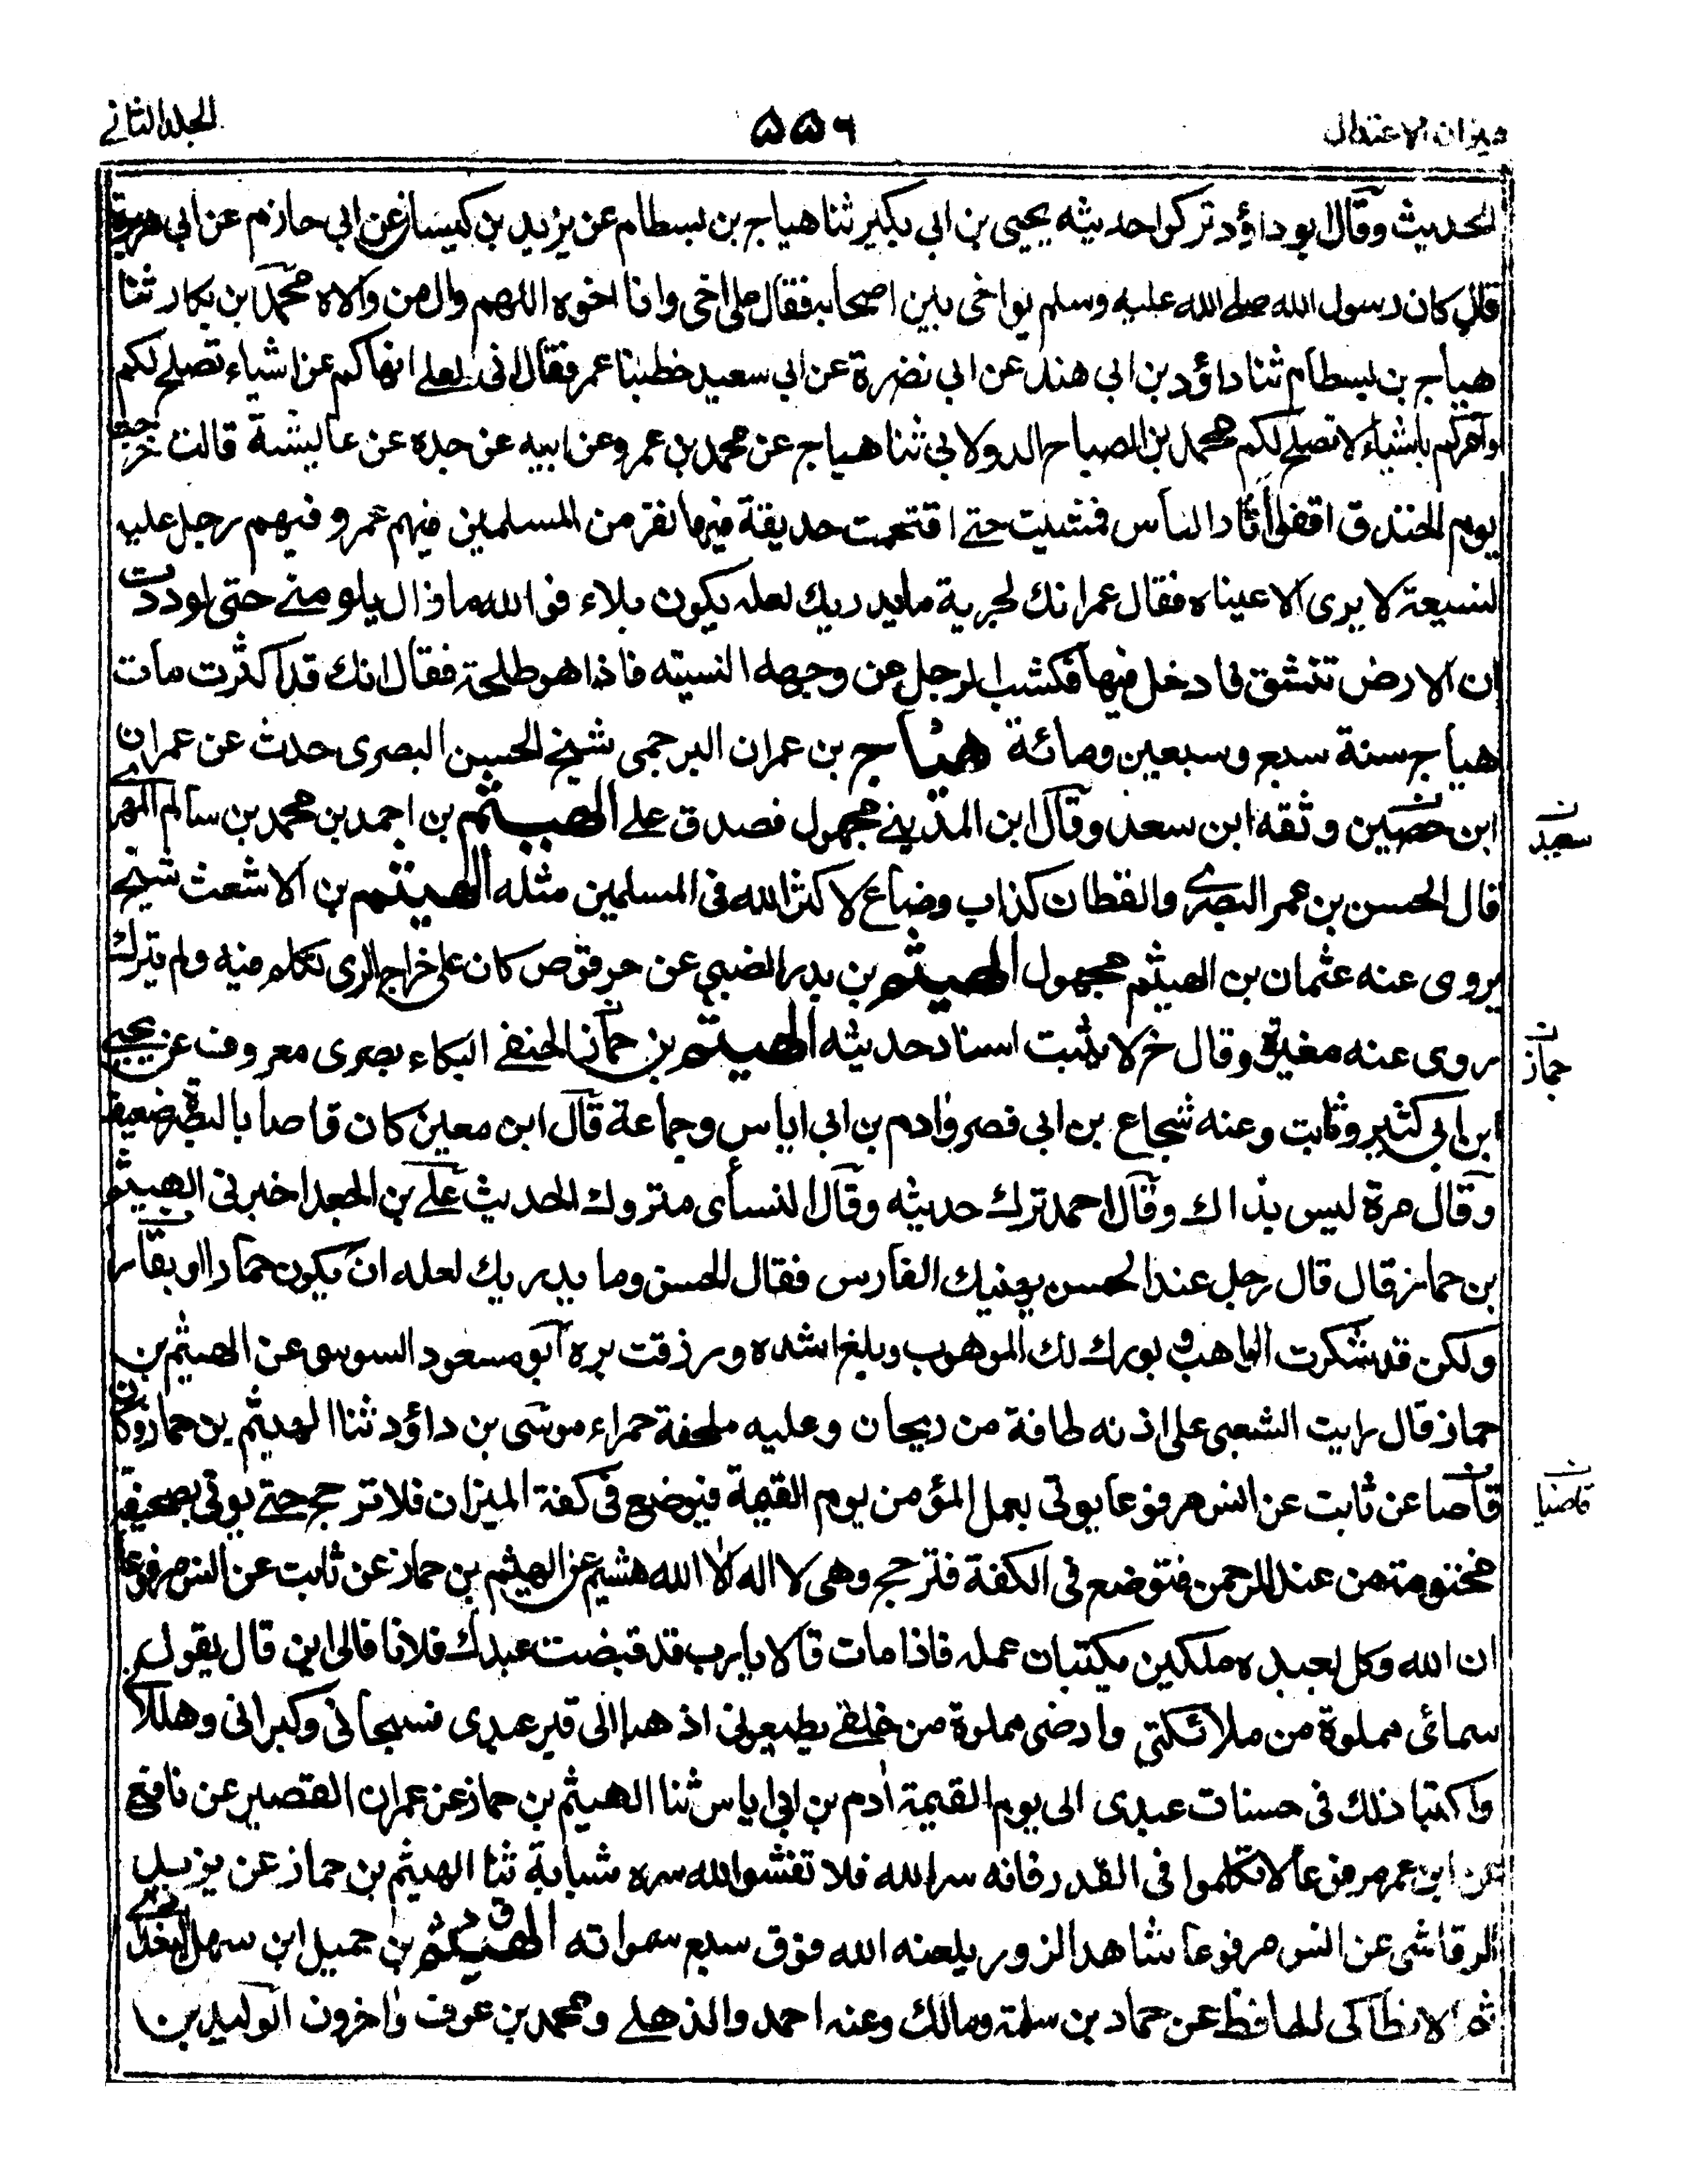 ميزان الاعتدال
٥٥٦
الجلد الثاني
الحديث وقال ابو داؤد تركوا حديثه يحيى بن ابى بكير ثنا هياج بن بسطام عن يزيد بن كيسان عن ابي حازم عن ابي هريرة
قال كان رسول الله صلى الله عليه وسلم يواخى بين اصحابه فقال على اخى وانا اخوه اللهم وال من والاه محمد بن بكار ثنا
هياج بن بسطام ثنا داؤد بن ابى هند عن ابى نضرة عن ابى سعيد خطبنا عمر فقال انى لعلى انهاكم عن اشياء تصلح لكم
وآمركم باشياء لا تصلح لكم محمد بن الصباح الدولابي ثنا هياج عن محمد بن عمرو عن ابيه عن جده عن عايشة قالت خرجت
يوم الخندق اقفوا أثار الناس فمشيت حتے اقتحمت حديقة فيها نفر من المسلمين فيهم عمر وفيهم رجل عليه
لنسيعة لا يرى الا عيناه فقال عمر انك لجرية ما يدريك لعله يكون بلاء فوالله ما زال يلومنے حتى لوددت
ان الارض تنشق فادخل فيها فكشف الرجل عن وجهه النسيته فاذا هو طلحة فقال انك قد اكثرت مات
هياج سنة سبع وسبعين ومائة هياج بن عمران البرجمى شيخ الحسن البصرى حدث عن عمران
ابن حصين وثقه ابن سعد وقال ابن المدينے مجهول فصدق على الهيثم بن احمد بن محمد بن سالم المهرى
قال الحسن بن عمر البصرے والقطان كذاب وضاع لا كثر الله فى المسلمين مثله الهيثم بن الاشعث شيخ
يروى عنه عثمان بن الهيثم مجهول الهيثم بن بدر الضبي عن حرقوص كان على خراج الرى تكلم فيه ولم يترك
روى عنه مغيرة وقال خ لا يثبت اسناد حديثه الهيثم بن حماز الحنفے البكاء بصرى معروف عن يحيى
ابن ابى كثير وثابت وعنه شجاع بن ابى نصر وادم بن ابى اياس وجماعة قال ابن معين كان قاصا بالبصرة ضعيف
وقال مرة ليس بذاك وقال احمد ترك حديثه وقال النسأى متروك الحديث على بن الجعد اخبرنى الهيثم
بن حماز قال قال رجل عند الحسن يهنيك الفارس فقال الحسن وما يدريك لعله ان يكون حمارا او بقارا
ولكن قد شكرت الواهب وبورك لك الموهوب وبلغ اشده ورزقت بره ابو مسعود السوسى عن الهيثم بن
حماز قال رايت الشعبى على اذنه طاقة من ريحان وعليه ملحفة حمراء موسى بن داؤد ثنا الهيثم بن حماز وكان
قاصا عن ثابت عن انس مرفوعا يوتى بعمل المؤمن يوم القيمة فيوضع فى كفة الميزان فلا ترجح حتے يوتى بصحيفة
مختومة من عند الرحمن فتوضع فى الكفة فترجح وهى لا اله الا الله هشيم عن الهيثم بن حماز عن ثابت عن انس مرفوعا
ان الله وكل لعبده ملكين يكتبان عمله فاذا مات قالا يا رب قد قبضت عبدك فلانا فالى اين قال يقول
سمائى مملوة من ملائكتى وارضى مملوة من خلقے يطيعونى اذهبا الى قبر عبدى فسبحانى وكبرانى وهللا
واكتبا ذلك فى حسنات عبدى الى يوم القيمة ادم بن ابى اياس ثنا الهيثم بن حماز عن عمران القصير عن نافع
عن ابن عمر مرفوعا لا تكلموا فى القدر فانه سر الله فلا تفشوا لله سره شبابة ثنا الهيثم بن حماز عن يزيد
الرقاشى عن انس مرفوعا شاهد الزور يلعنه الله فوق سبع سمواته الهيثم بن جميل ابن سهل البغدادى
ثم الانطاكى الحافظ عن حماد بن سلمة ومالك وعنه احمد والذهلے ومحمد بن عوف واخرون الوليد بن
سعيد
حماز
قاضيا